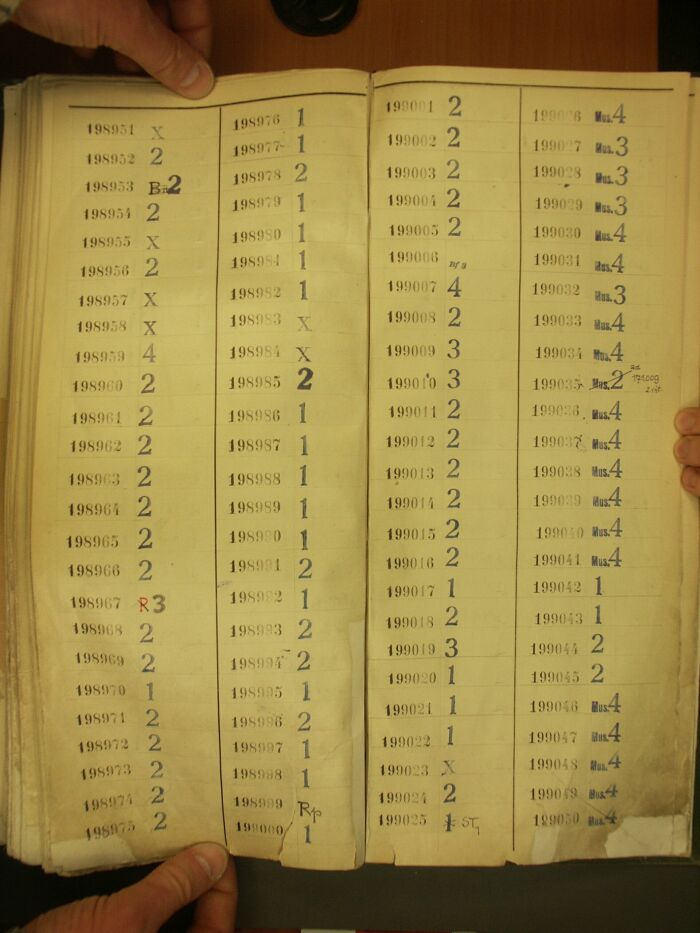 198951 X
198952 2
198953 2
198954 2
198955 X
198956 2
198957 X
198958 X
198959 4
198960 2
198961 2
198962 2
198963 2
198964 2
198965 2
198966 2
198967 R 3
198968 2
198969 2
198970 1
198971 2
198972 2
198973 2
198974 2
198975 2
198976 1
198977 1
198978 2
198979 1
198980 1
198981 1
198982 1
198983 X
198984 X
198985 2
198986 1
198987 1
198988 1
198989 1
198990 1
198991 2
198992 1
198993 2
198994 2
198995 1
198996 2
198997 1
198998 1
198999
199000 1
199001 2
199002 2
199003 2
199004 2
199005 2
199006
199007 4
199008 2
199009 3
199010 3
199011 2
199012 2
199013 2
199014 2
199015 2
199016 2
199017 1
199018 2
199019 3
199020 1
199021 1
199022 1
199023 X
199024 2
199025 1 ST,
199026 Mus. 4
199027 Mus. 3
199028 Mus. 3
199029 Mus. 3
199030 Mus. 4
199031 Mus. 4
199032 Mus. 3
199033 Mus. 4
199034 Mus. 4
199035 Mus. 2
199036 Mus. 4
199037 Mus. 4
199038 Mus. 4
199039 Mus. 4
199040 Mus. 4
199041 Mus. 4
199042 1
199043 1
199044 2
199045 2
199046 Mus. 4
199047 Mus. 4
199048 Mus. 4
199049 Mus. 4
199050 Mus. 4